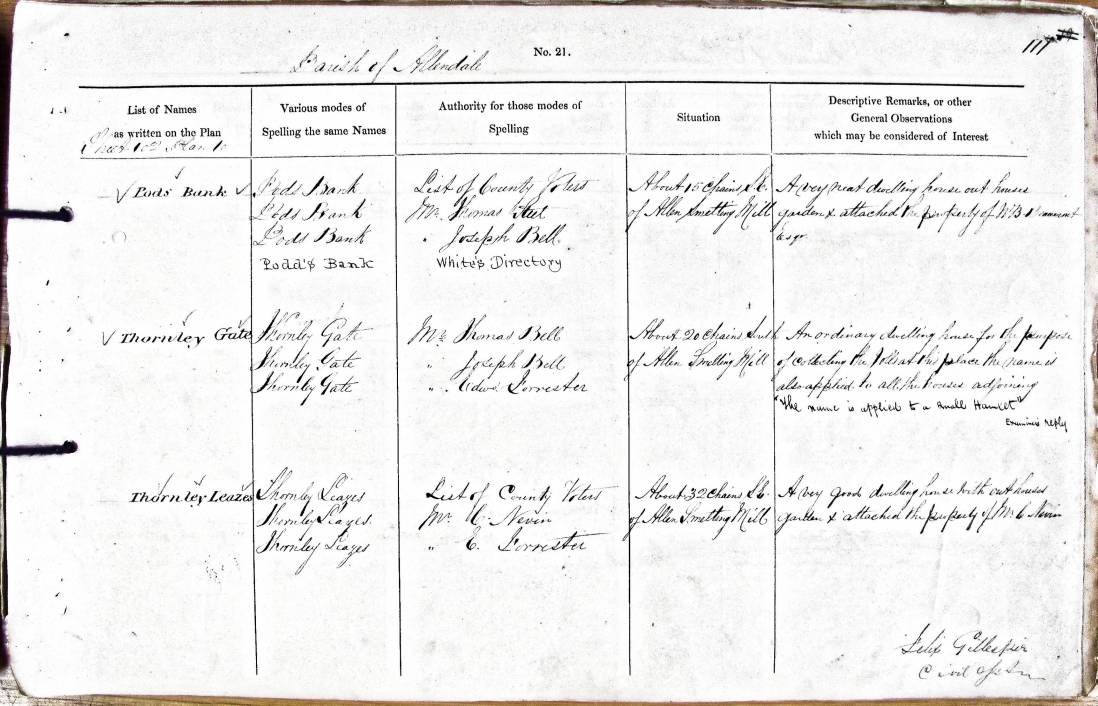 No. 21.
111
Parish of Allendale
List of Names
as written on the Plan
Sheet 102 Plan 10
Various modes of
Spelling the same Names
Authority for those modes of
Spelling
Situation
Descriptive Remarks, or other
General Observations
which may be considered of Interest
Pods Bank
Pods Bank
Pods Bank
Pods Bank
Podd's Bank
List of County Voters
Mr. Thomas
" Joseph Bell
White's Directory
About 15 Chains S.E.
of Allen Smelting Mill
A very neat dwelling house out houses
garden & attached the property of W. B.
Esqr.
Thornley Gate
Thornley Gate
Thornley Gate
Thornley Gate
Mr. Thomas Bell
" Joseph Bell
" Edwd. Forrester
About 20 Chains South
of Allen Smelting Mill
An ordinary dwelling house for the purpose
of collecting the Tolls at this place the name is
also applied to all the houses adjoining
"the name is applied to a small Hamlet"
Examiner's reply
Thornley Leazes
Thornly Leazes
Thornley Leazes.
Thornley Leazes
List of County Voters
Mr. C. Nevin
" E. Forrester
About 32 Chains S.E.
of Allen Smelting Mill
A very good dwelling house with out houses
garden & attached the property of Mr. C Nevin
Felix Gillespie
Civil Asst.